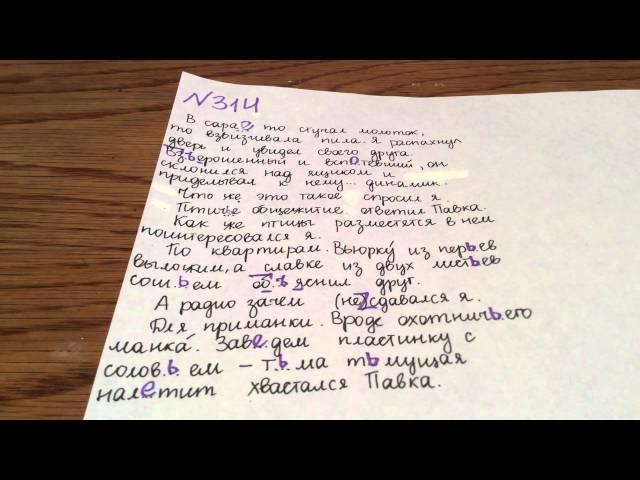 N314
В сарае то стучал молоток,
то взвизгивала пила. Я распахнул
дверь и увидел своего друга.
Взъерошенный и вспотевший, он
склонился над ящиком и
приделывал к нему... динамик.
Что же это такое спросил я.
Птичье общежитие ответил Павка.
Как же птицы разместятся в нем
поинтересовался я.
По квартирам. Вьюрку из перьев
выложим, а славке из двух листьев
сош..ьем об..ъяснил друг.
А радио зачем (не)сдавался я.
Для приманки. Вроде охотничьего
манка. Заведем пластинку с
солов..ьем – т..ьма тьмущая
налетит хвастался Павка.